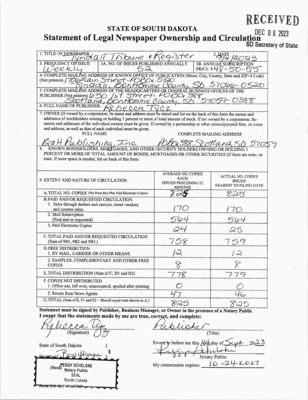 RECEIVED
DEC 08 2023
SD Secretary of State
STATE OF SOUTH DAKOTA
Statement of Legal Newspaper Ownership and Circulation
1. TITLE OF NEWSPAPER
Tyndall Tribune & Register
2023
3. FREQUENCY OF ISSUE
Weekly
3A. NO. OF ISSUES PUBLISHED ANNUALLY
52
3B. ANNUAL SUBSCRIPTION PRICE
4. COMPLETE MAILING ADDRESS OF KNOWN OFFICE OF PUBLICATION (Street, City, County, State and ZIP+4 Code) (Not printers)
Main Street PO Box 520
Tyndall, Bon Homme County, SD 57066-0520
5. COMPLETE MAILING ADDRESS OF THE HEADQUARTERS OR GENERAL BUSINESS OFFICES OF THE PUBLISHER (Not printer)
Scotland, Bon Homme County, SD 57059-0388
6. FULL NAME OF PUBLISHER:
Rebecca Tycz
7. OWNER (If owned by a corporation, its name and address must be stated and list on the back of this form the names and addresses of stockholders owning or holding 1 percent or more of total amount of stock. If not owned by a corporation, the names and addresses of the individual owners must be given. If owned by a partnership or other unincorporated firm, its name and address, as well as that of each individual must be given.
FULL NAME COMPLETE MAILING ADDRESS
B&H Publishing, Inc PO Box 388, Scotland, SD 57059
KNOWN BONDHOLDERS, MORTGAGEES, AND OTHER SECURITY HOLDERS OWNING OR HOLDING 1 PERCENT OR MORE OF TOTAL AMOUNT OF BONDS, MORTGAGES OR OTHER SECURITIES (If there are none, so state. If more space is needed, list on back of this form.
8. EXTENT AND NATURE OF CIRCULATION
AVERAGE NO. COPIES EACH ISSUE DURING PRECEDING 12 MONTHS
ACTUAL NO. COPIES ISSUED NEAREST TO FILING DATE
A. TOTAL NO. COPIES (Net Press Run Plus Paid Electronic Copies) 825 825
B. PAID AND/OR REQUESTED CIRCULATION
1. Sales through dealers and carriers, street vendors, and counter sales. 170 170
2. Mail Subscription (Paid and or requested) 564 564
3. Paid Electronic Copies 24 25
C. TOTAL PAID AND/OR REQUESTED CIRCULATION (Sum of 9B1, 9B2 and 9B3.) 758 759
D. FREE DISTRIBUTION
1. BY MAIL, CARRIER OR OTHER MEANS 12 12
2. SAMPLES, COMPLIMENTARY AND OTHER FREE COPIES 8 8
E. TOTAL DISTRIBUTION (Sum of C, D1 and D2) 778 779
F. COPIES NOT DISTRIBUTED
1. Office use, left over, unaccounted, spoiled after printing 0 0
2. Return from News Agents 47 46
G. TOTAL (Sum of E, F1 and F2 - Should equal total shown in A.) 825 825
Statement must be signed by Publisher, Business Manager, or Owner in the presence of a Notary Public
I swear that the statements made by me are true, correct, and complete:
Rebecca Tycz Publisher
(Signature) (Title)
State of South Dakota
Sworn to before me this day of Sept. 2023
Bon Homme
Peggy Schelske
Notary Public
(Seal)
My commission expires: 10-24-2027
PEGGY SCHELSKE
Notary Public
SEAL
South Dakota